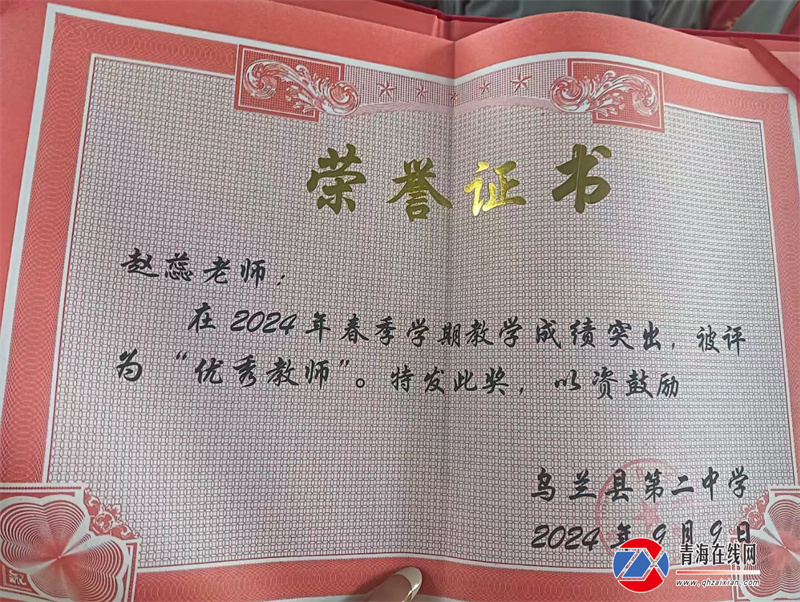 荣誉证书
赵蕊老师：
在2024年春季学期教学成绩突出，被评
为“优秀教师”。特发此奖，以资鼓励
乌兰县第二中学
2024年9月9日
青海在线网
www.qhzaixian.com